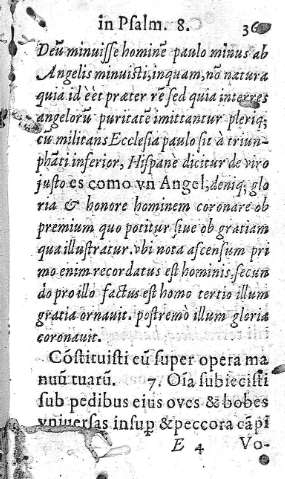 in Psalm. 8. 36
Deũ minuisse hominẽ paulo minus ab
Angelis minuisti, inquam, nõ natura
quia id eẽt præter rẽ sed quia interres
angelorũ puritatẽ imittantur pleriq;
cu militans Ecclesia paulo sit à triun-
phati inferior, Hispanè dicitur de viro
justo es como vn Angel, deniq; glo
ria & honore hominem coronare ob
premium quo potitur siue ob gratiam
qua illustratur. vbi nota ascensum pri
mo enim recordatus est hominis, secun
do pro illo factus est homo tertio illum
gratia ornauit. postremò illum gloria
coronauit.
Cõstituisti eũ super opera ma
nuũ tuarũ. 7. Oĩa subiecisti
sub pedibus eius oves & bobes
vniversas insup & peccora cãpi
E 4 Vo-